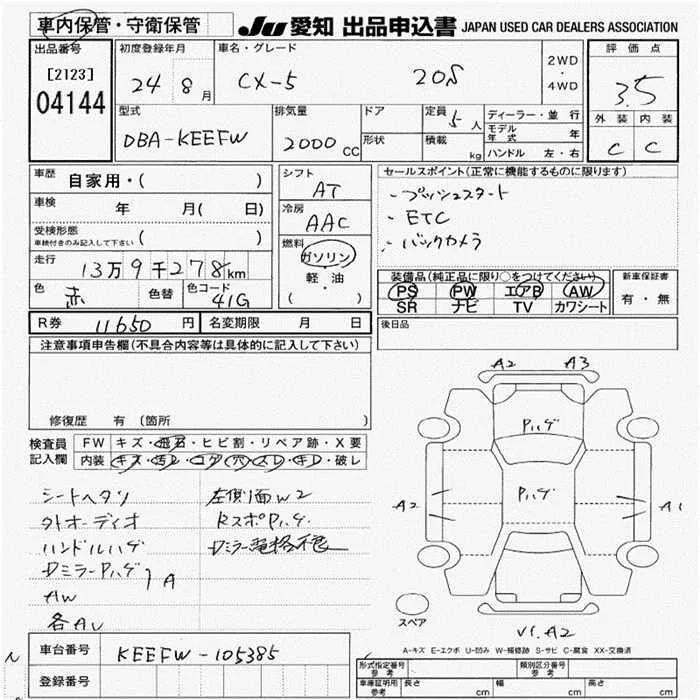 車内保管・守衛保管
JU 愛知 出品申込書 JAPAN USED CAR DEALERS ASSOCIATION
出品番号
[2123]
04144
初度登録年月
24 8 月
車名・グレード
CX-5 20S
2WD
・
4WD
評価点
3.5
外装 内装
C C
型式
DBA-KEEFW
排気量
2000 CC
ドア
形状
定員 5 人
積載 kg
ディーラー・並行
モデル年式 年
ハンドル 左・右
車歴 自家用・( )
車検 年 月( 日)
受検形態
車検付きのみ記入して下さい ( )
走行
13万9千278km
色 赤 色替 色コード 41G
シフト
AT
冷房
AAC
燃料
ガソリン
・
軽・油
( )
セールスポイント(正常に機能するものに限ります)
・プッシュスタート
・ETC
・バックカメラ
装備品(純正品に限り○をつけてください)
PS PW エアB AW
SR ナビ TV カワシート
新車保証書
有・無
R券 11650 円 名変期限 月 日
後日品
注意事項申告欄(不具合内容等は具体的に記入して下さい)
修復歴 有 (箇所 )
検査員
記入欄
FW キズ・飛石・ヒビ割・リペア跡・X要
内装 キズ・汚レ・コゲ・穴・スレ・キレ・破レ
シートヘタリ
外オーディオ
ハンドルハゲ
DミラーPハゲ A
AW
各AU
左側面W2
RスポPハゲ
Dミラー電格不良
A2 A3
Pハゲ
A2 Pハゲ A1
スペア
V1.A2
A-キズ E-エクボ U-凹み W-補修跡 S-サビ C-腐食 XX-交換済
車台番号 KEEFW-105385
登録番号
形式指定番号
参考
類別区分番号
参考
車庫証明用
参考
長さ cm 幅 cm 高さ cm